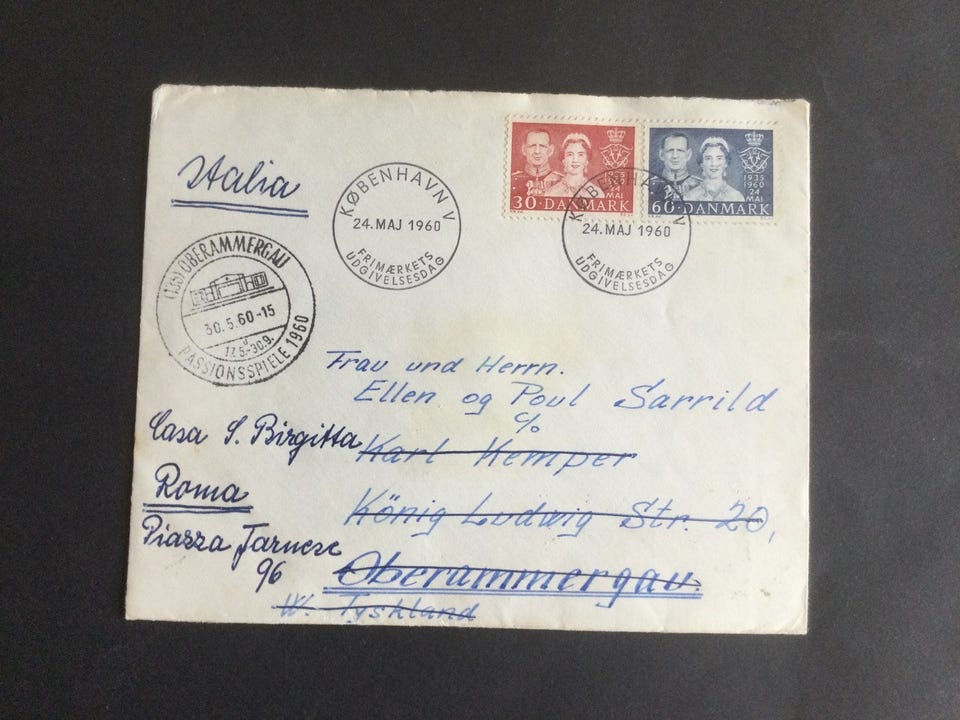 1935
1960
24
MAJ
30 · DANMARK
1935
1960
24
MAJ
60 · DANMARK
KØBENHAVN V
24. MAJ 1960
FRIMÆRKETS
UDGIVELSESDAG
KØBENHAVN V
24. MAJ 1960
FRIMÆRKETS
UDGIVELSESDAG
Italia
(13b) OBERAMMERGAU
30.5.60-15
17.5.-30.9.
PASSIONSSPIELE 1960
Frau und Herrn.
Ellen og Poul Sarrild
c/o
Karl Kemper
König Ludwig Str. 20,
Oberammergau.
W. Tyskland
Casa S. Birgitta
Roma
Piazza Farnese
96